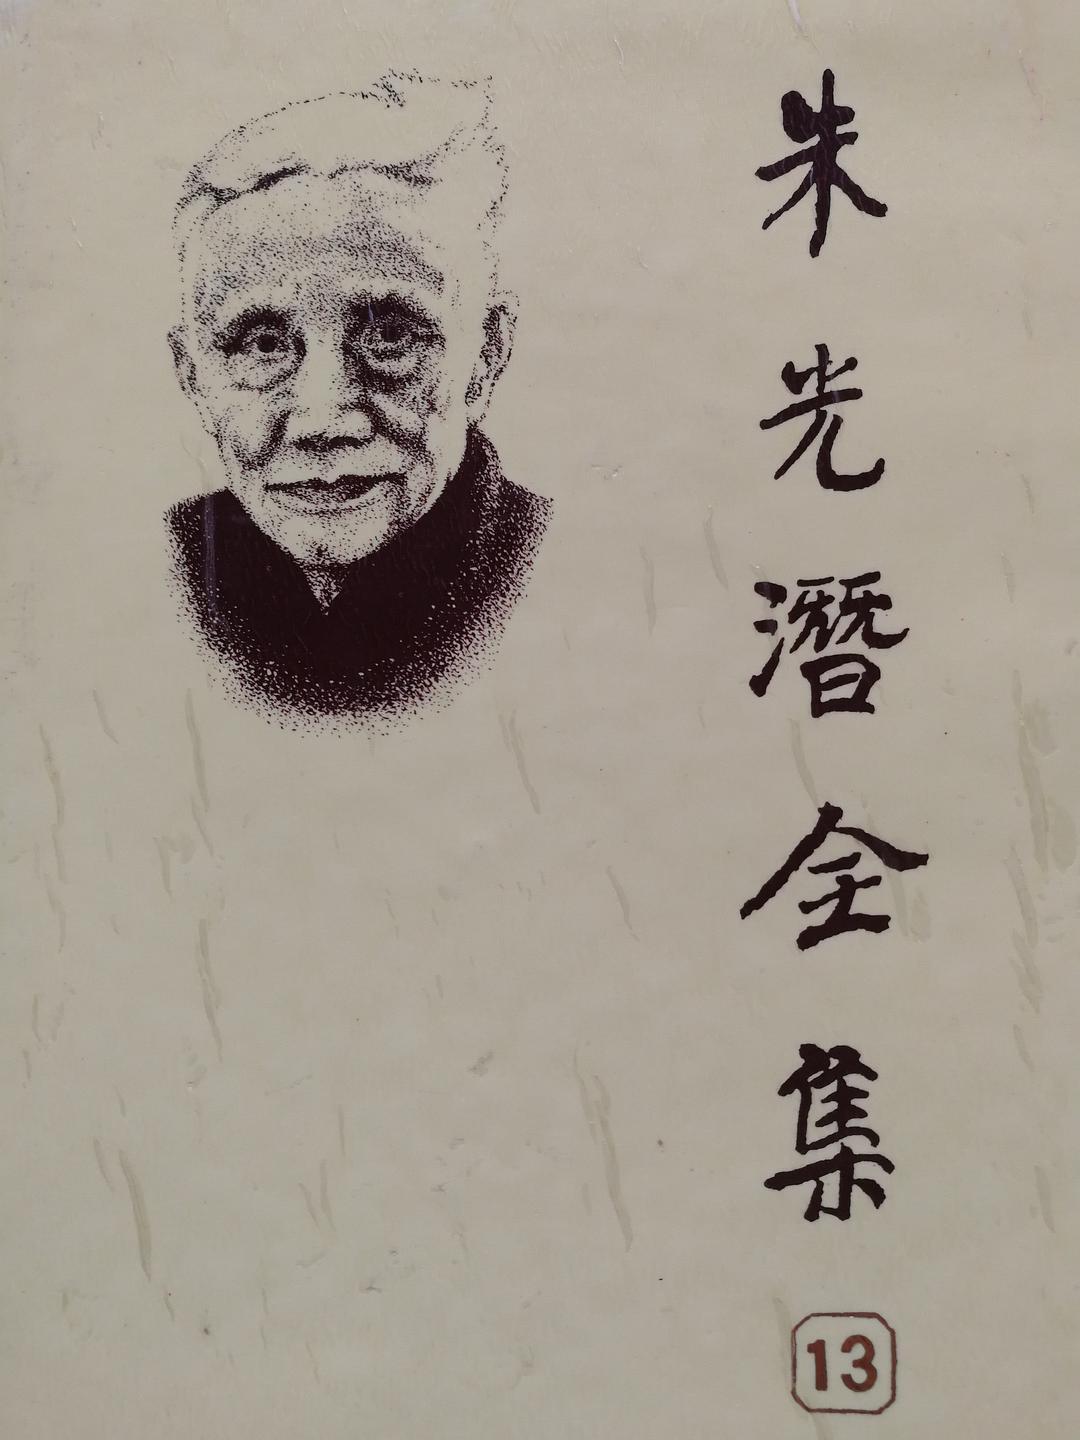 朱光潜全集
13